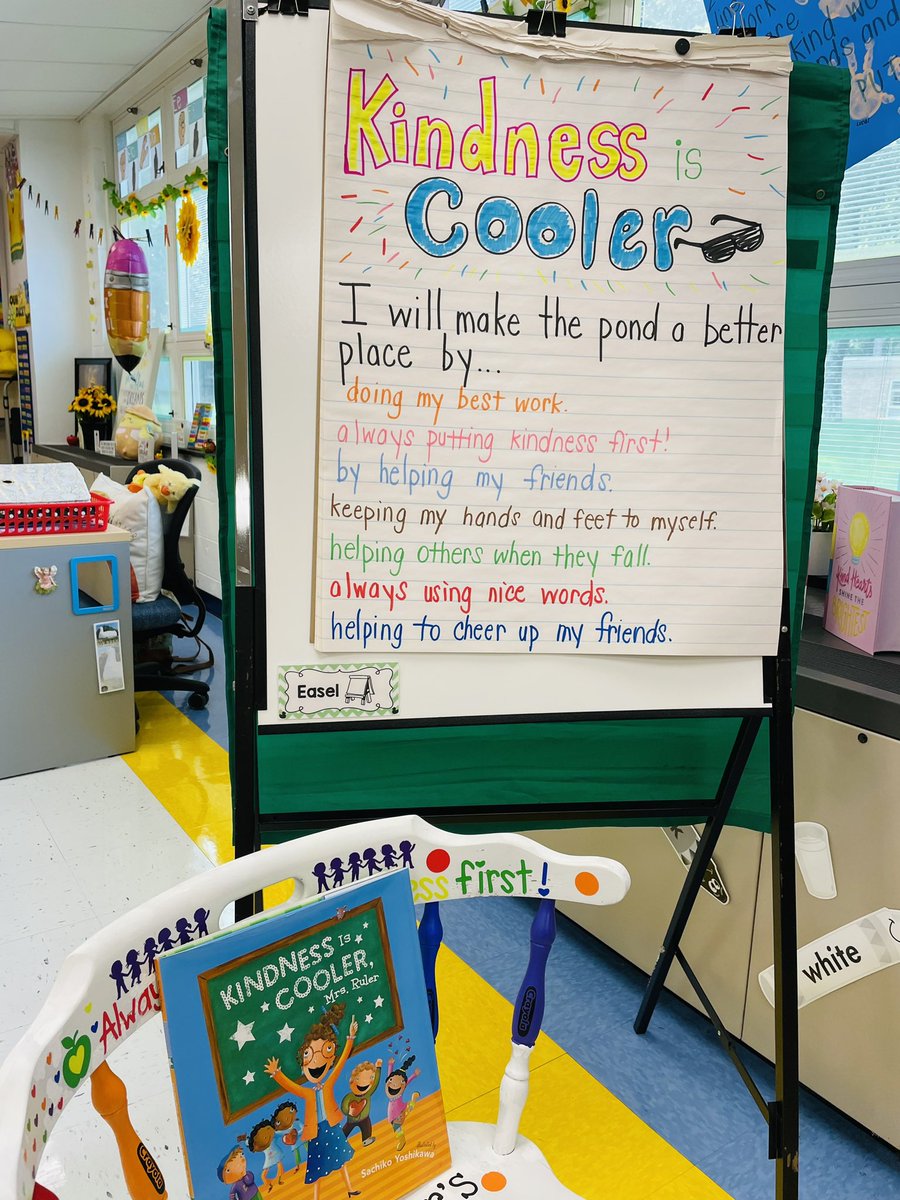 Kindness is
Cooler
I will make the pond a better
place by...
doing my best work.
always putting kindness first!
by helping my friends.
keeping my hands and feet to myself.
helping others when they fall.
always using nice words.
helping to cheer up my friends.
Easel
Kind Hearts
SHINE THE
BRIGHTEST
white
first!
Always
Crayola
Crayola
KINDNESS IS
COOLER,
Mrs. Ruler
illustrated by
Sachiko Yoshikawa